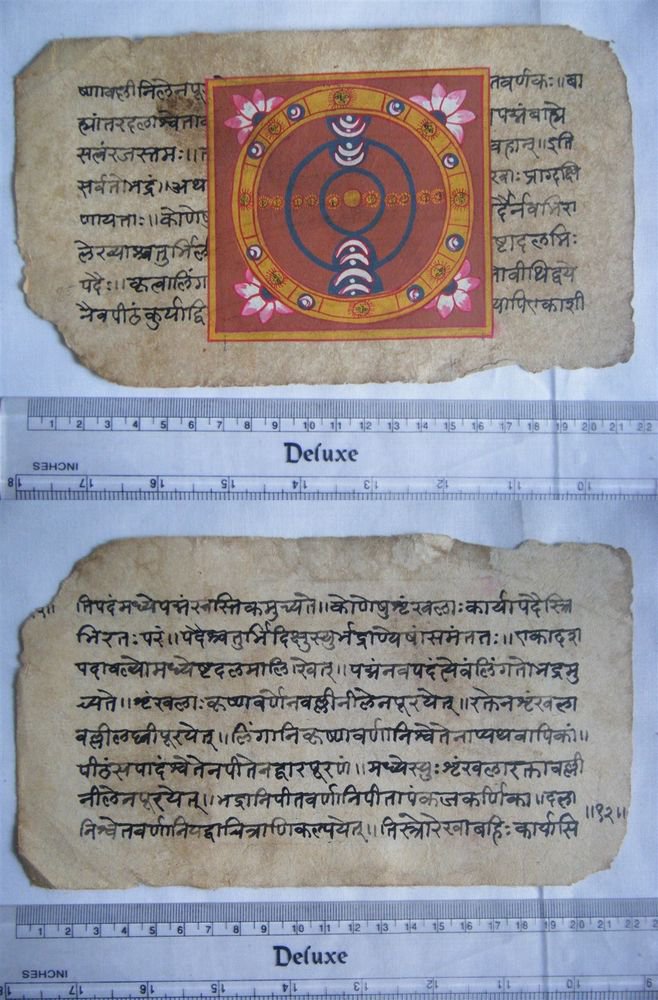 ष्णावल्लीनीलेनपू तवर्णकः॥बा
ह्यांतरदलाश्वेता पद्मंबाह्ये
सत्वंरजस्तमः॥ वहान्॥इति
सर्वतोभद्रं॥अथ प्राग्दक्षि
णायताः॥कोणेषु
लेख्याश्चतुर्भिर्ल ष्टादलभिः
पदैः॥कृत्वालिंग वीथिद्वये
नैवपीठंकुर्याद्वि काशी
1 2 3 4 5 6 7 8 9 10 11 12 13 14 15 16 17 18 19 20 21 22
Deluxe
INCHES
तिपदंमध्येपद्मंस्वस्तिकमुच्यते॥कोणेषुशृंखलाःकार्यापदैस्त्रि
भिरतःपरं॥पदैश्चतुर्भिर्दिक्षुस्युर्भद्राण्येषांसमंततः॥एकादश
पदावल्योमध्येष्टदलमालिखेत्॥पद्मंनवपदंह्येवंलिंगतोभद्रमु
च्यते॥शृंखलाःकृष्णवर्णेनवल्लीनीलेनपूरयेत्॥रक्तेनशृंखला
वल्लीलघ्वीपूरयेत्॥लिंगानिकृष्णवर्णानिश्वेतेनाप्यथवापिकां॥
पीठंसपादंश्वेतेनपीतेनद्वारपूरणं॥मध्येस्युःशृंखलारक्तावल्ली
नीलेनपूरयेत्॥भद्रानिपीतवर्णानिपीतापंकजकर्णिका॥दला
निश्वेतवर्णानियद्वाचित्राणिकल्पयेत्॥तिस्त्रोरेखाबहिःकार्यासि
॥१२॥
1 2 3 4 5 6 7 8 9 10 11 12 13 14 15 16 17 18 19 20 21 22
Deluxe
INCHES